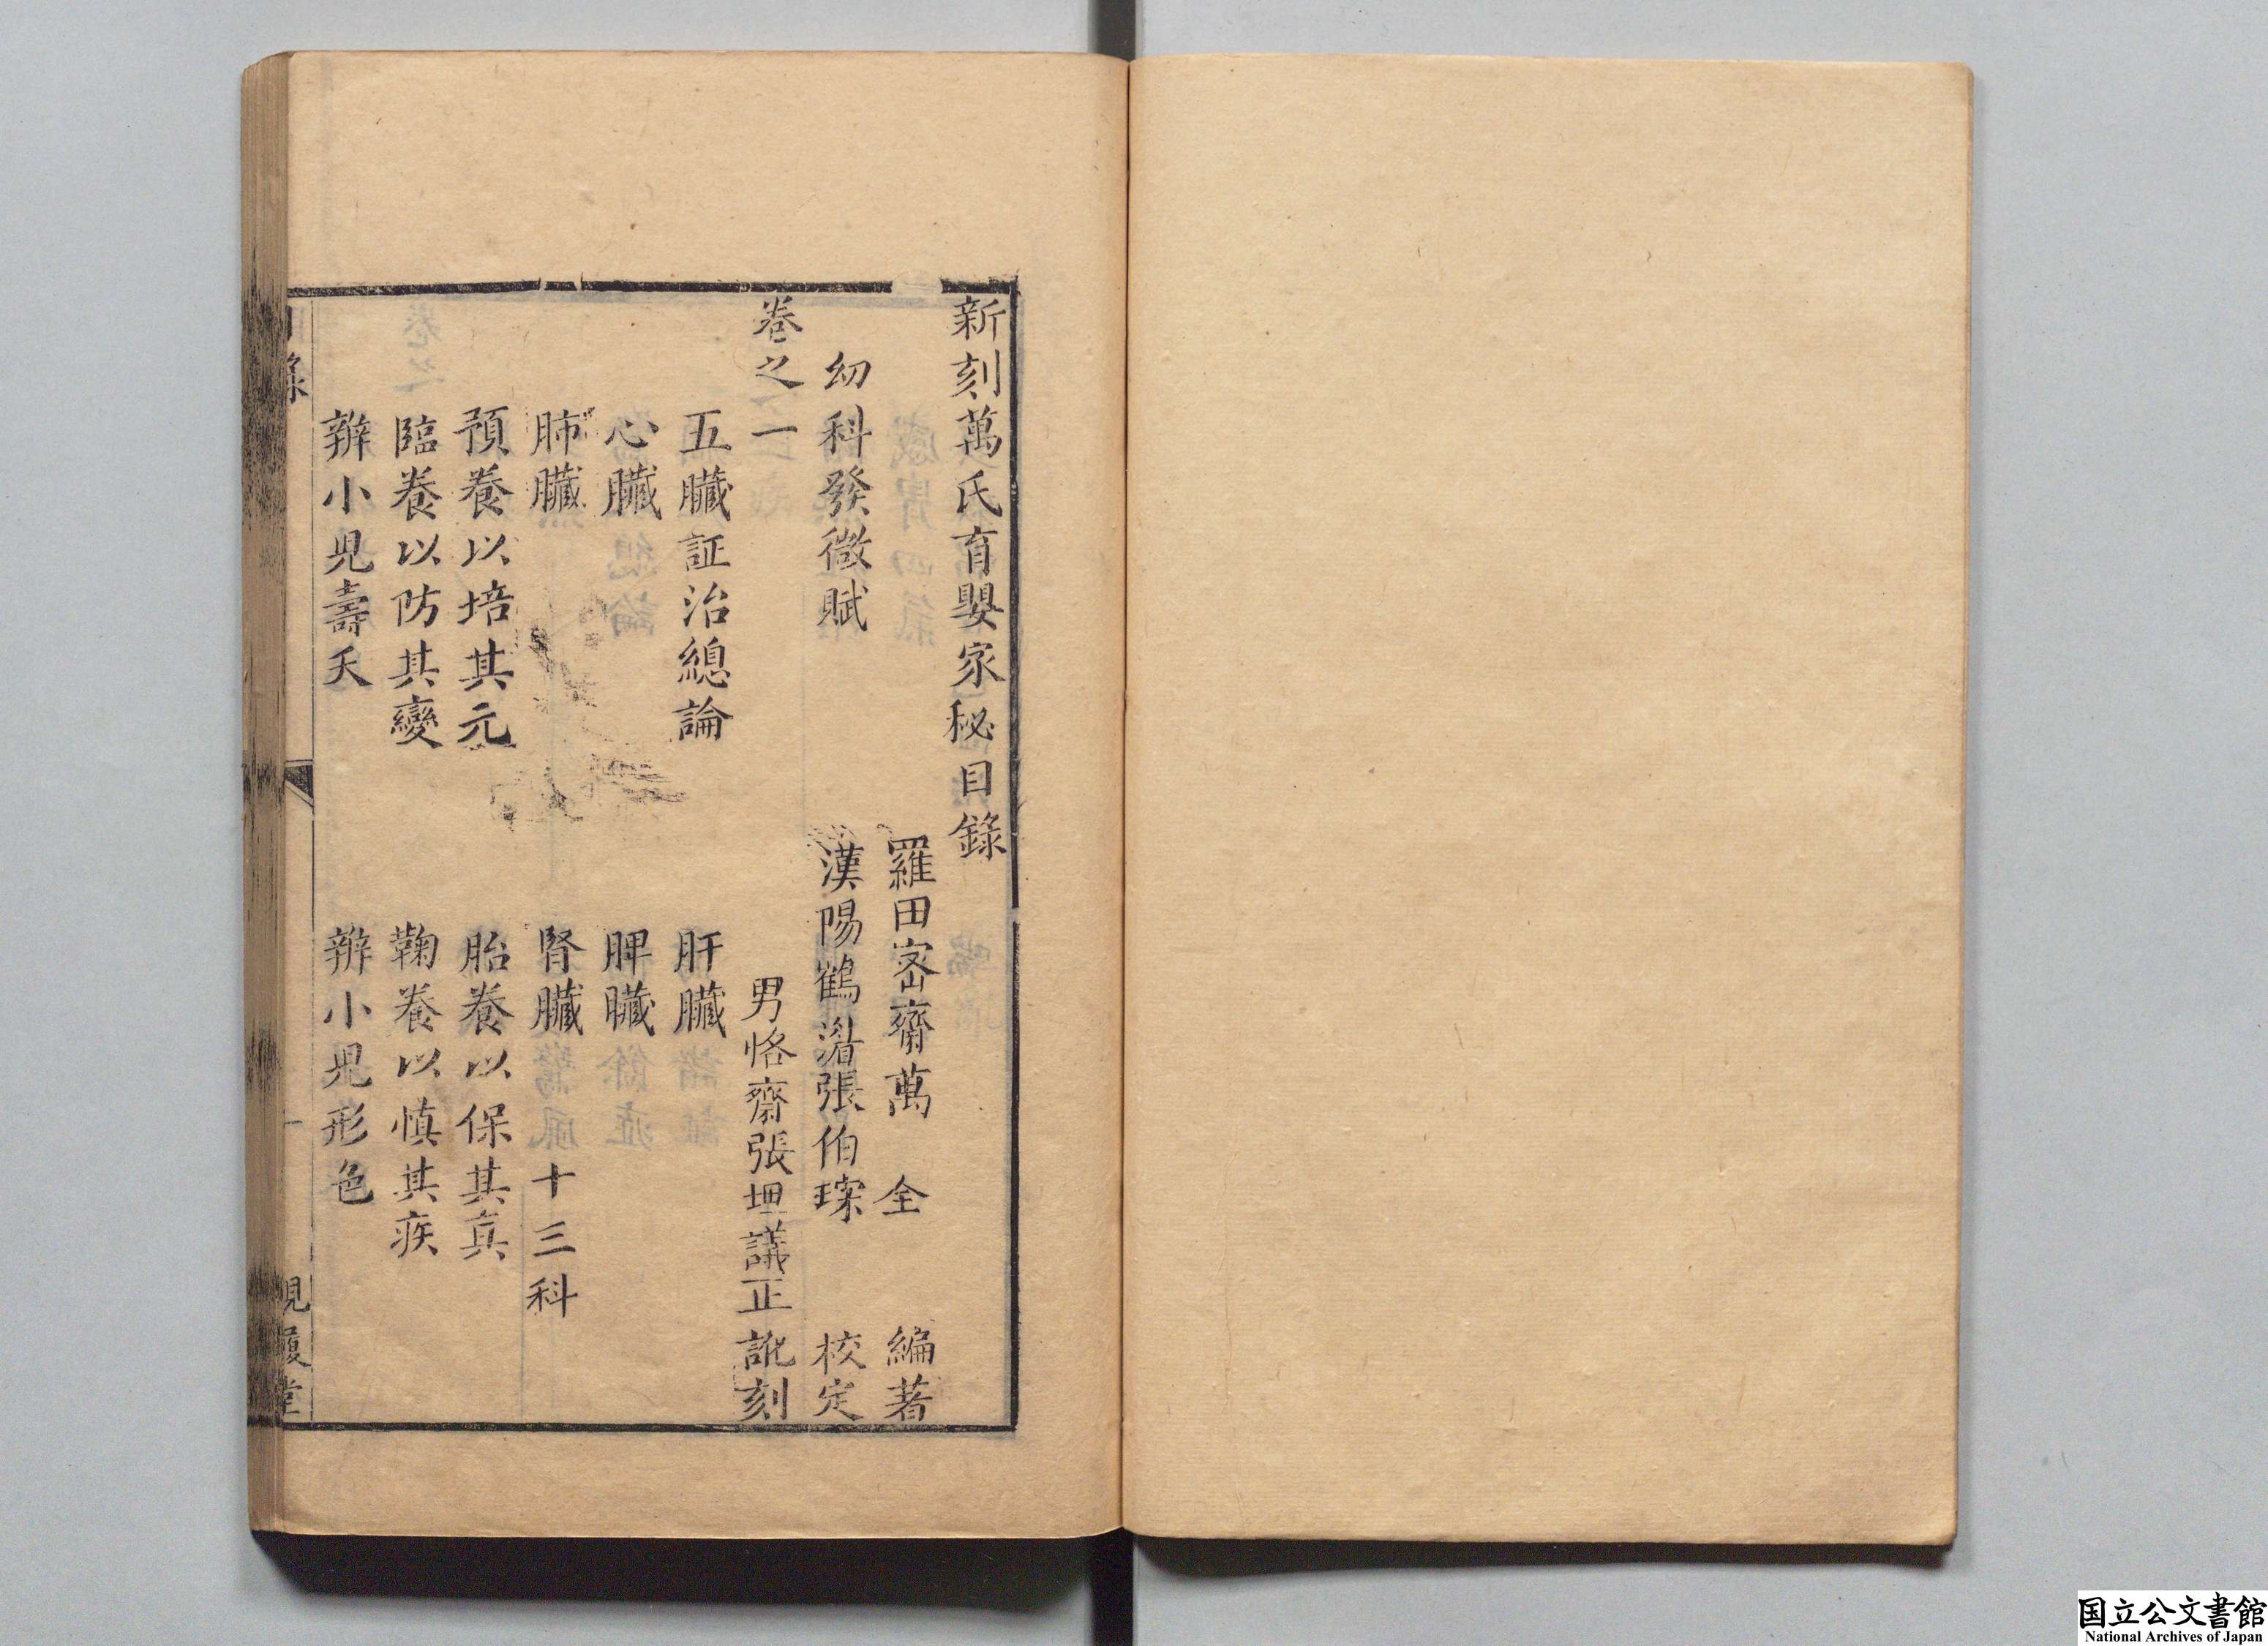 新刻萬氏育嬰家秘目錄
羅田宻齋萬　全　編著
幼科發微賦　漢陽鶴湽張伯琛　校定
卷之一　男恪齋張坦議正訛刻
五臟証治總論　肝臟
心臟　脾臟
肺臟　腎臟　十三科
預養以培其元　胎養以保其真
臨養以防其變　鞠養以慎其疾
辨小兒壽夭　辨小兒形色
目錄　一　視履堂
国立公文書館
National Archives of Japan